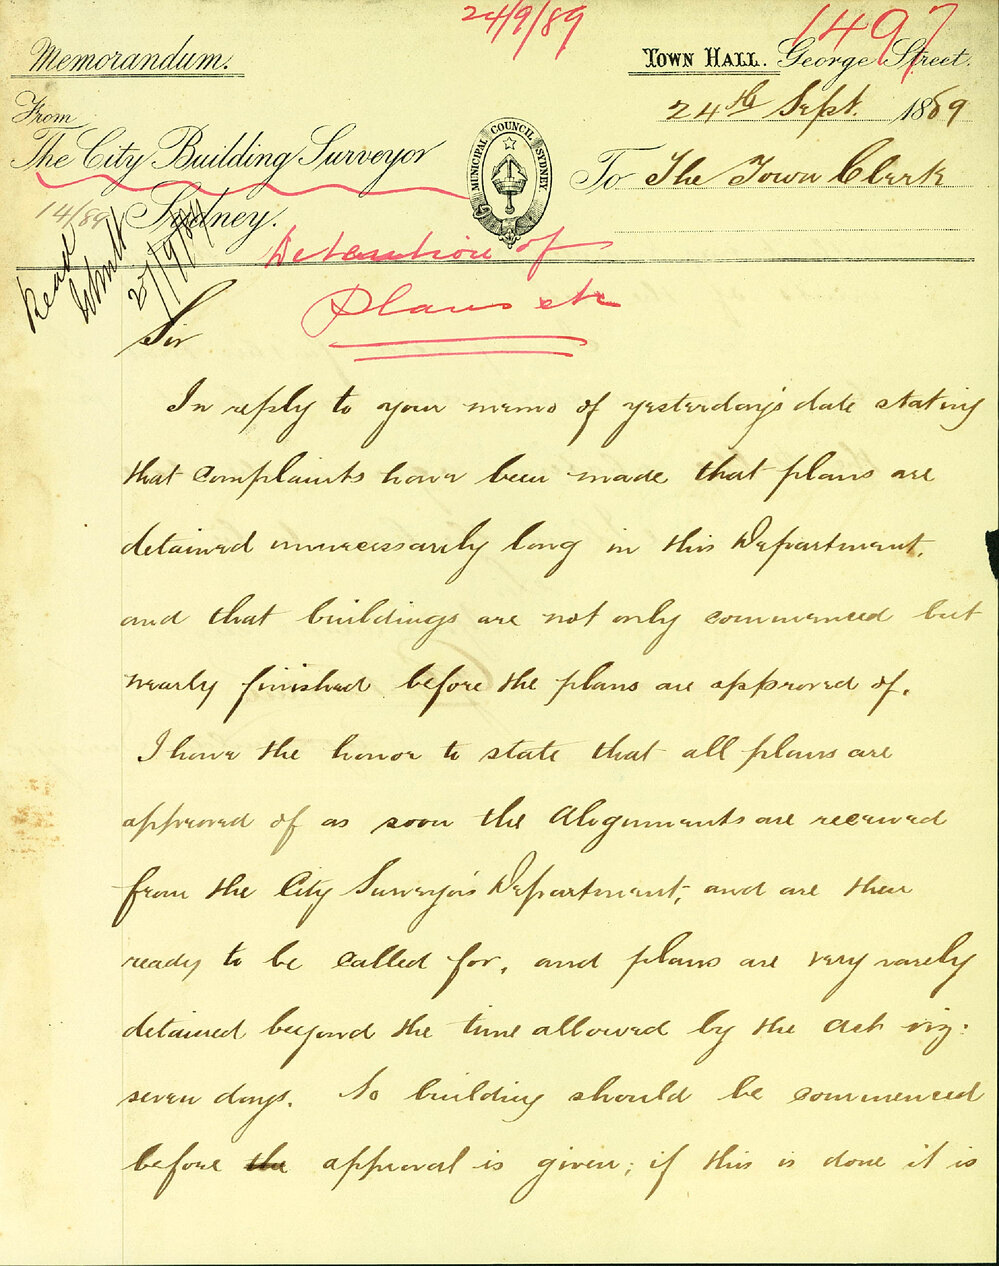 24/9/89
1497
Memorandum.
TOWN HALL. George Street.
24th Sept. 1889
From
The City Building Surveyor
MUNICIPAL COUNCIL SYDNEY
To The Town Clerk
14/89 Sydney.
Read
27/9/89
Detention of
Plans etc
Sir
In reply to your memo of yesterday's date stating
that complaints have been made that plans are
detained unnecessarily long in this Department,
and that buildings are not only commenced but
nearly finished before the plans are approved of.
I have the honor to state that all plans are
approved of as soon the Alignments are received
from the City Surveyor's Department, and are then
ready to be called for, and plans are very rarely
detained beyond the time allowed by the Act viz:
seven days. No building should be commenced
before the approval is given; if this is done it is